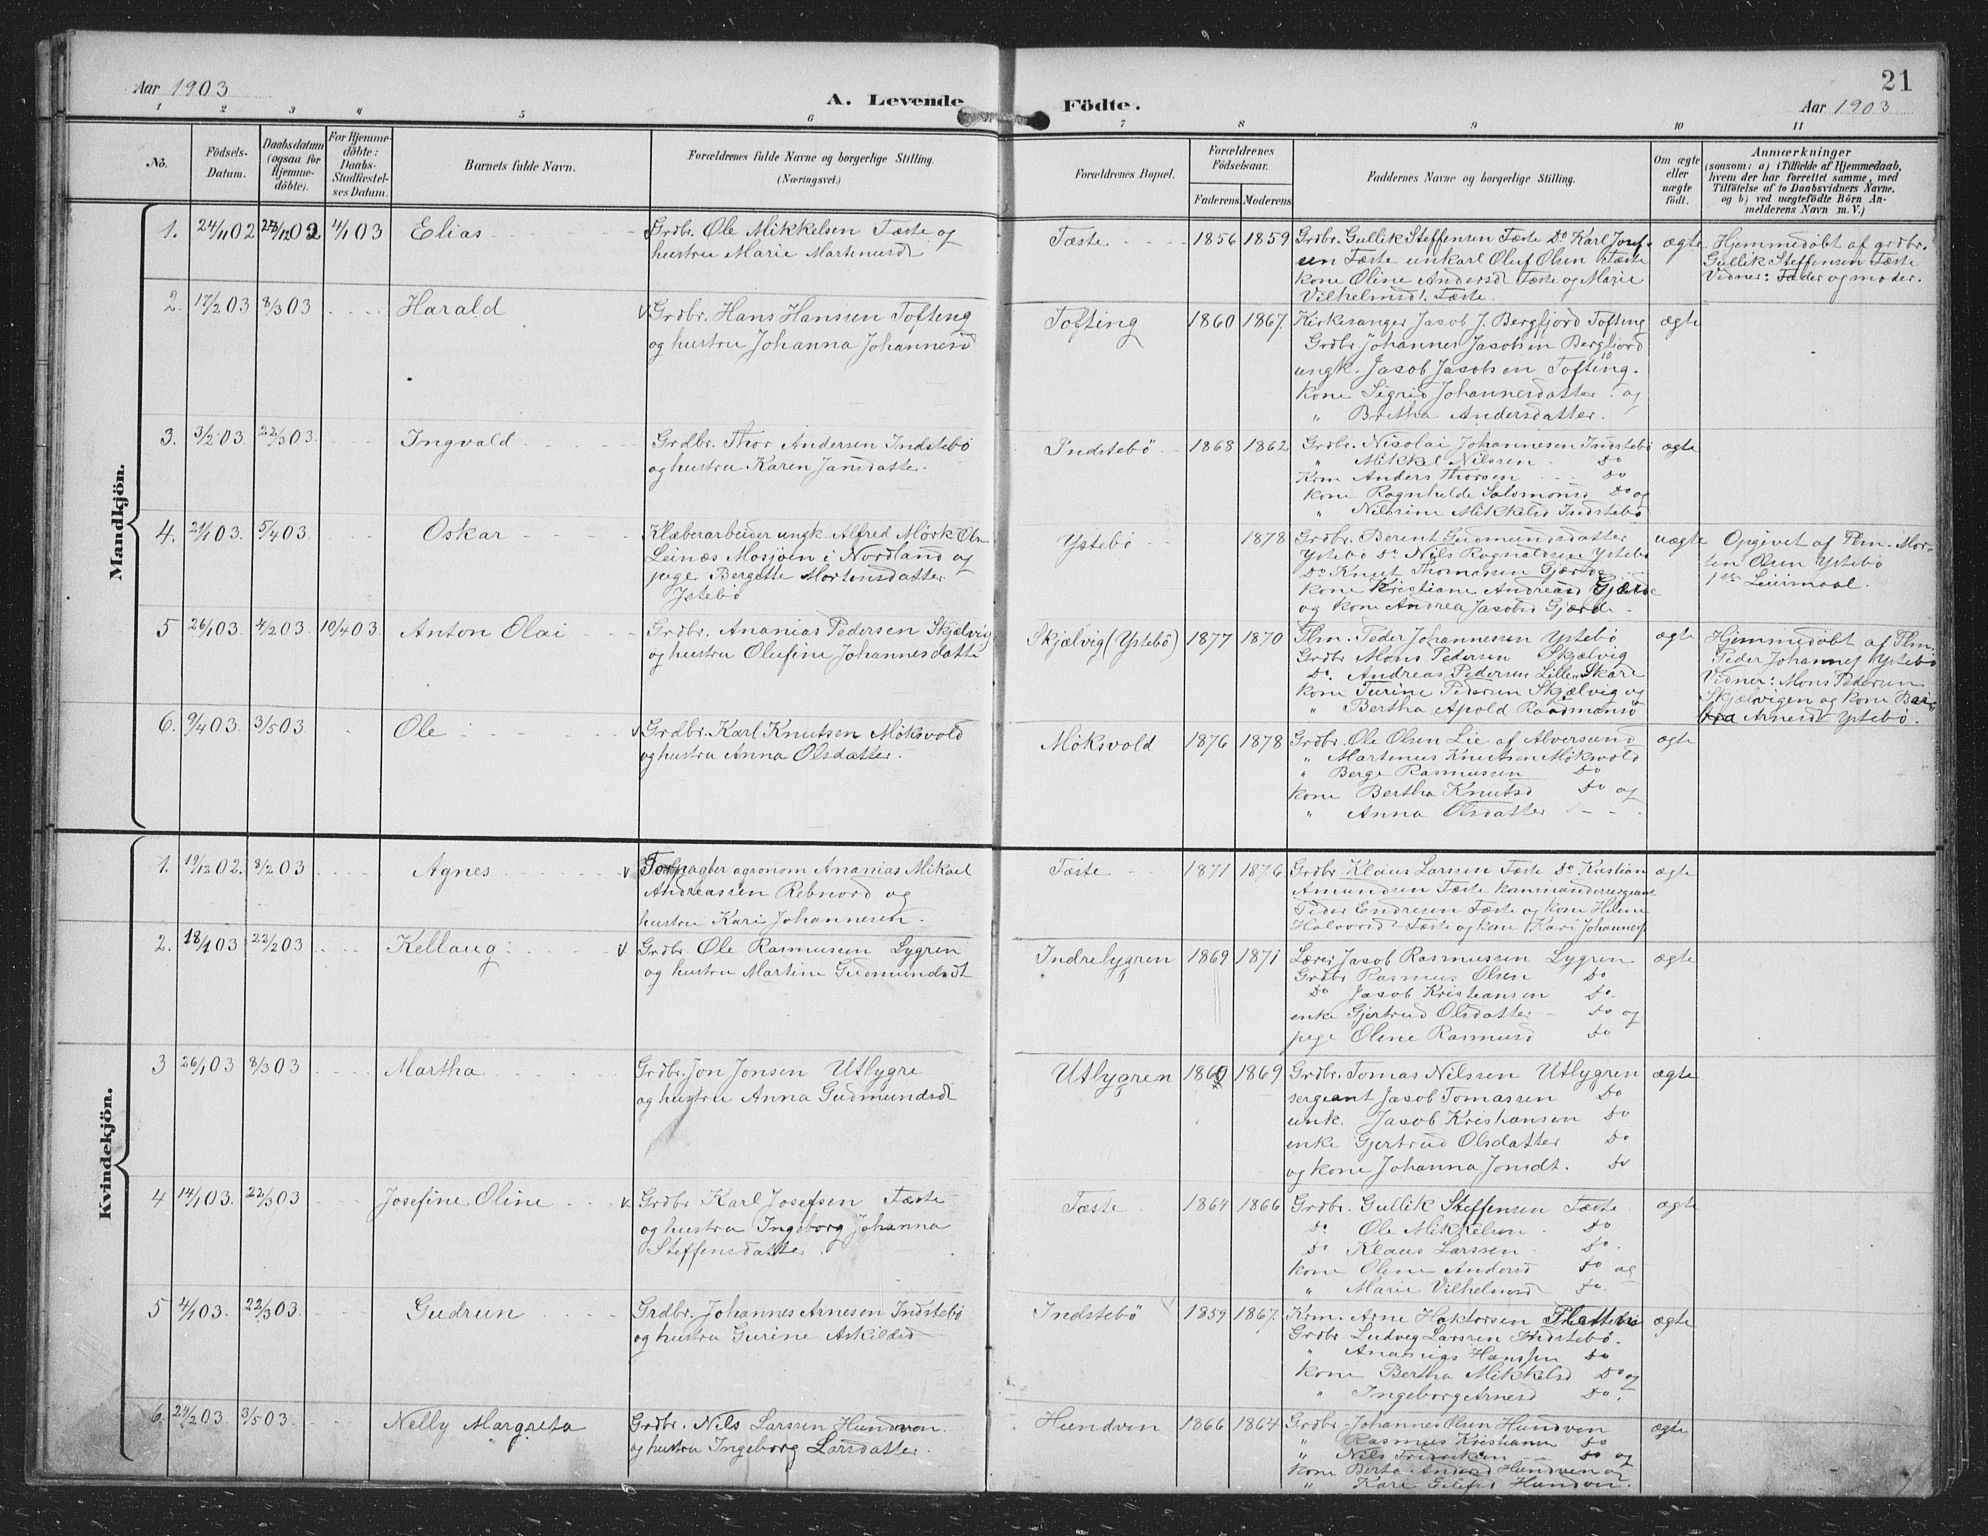 Aar 1903
A. Levende Födte.
21
Aar 1903
1 2 3 4 5 6 7 8 9 10 11
No.
Födsels-Datum.
Daabsdatum (ogsaa for Hjemme-döbte).
For Hjemme-döbte: Daabs-Stadfæstel-ses Datum.
Barnets fulde Navn.
Forældrenes fulde Navne og borgerlige Stilling.
(Næringsvei.)
Forældrenes Bopæl.
Forældrenes Födselsaar.
Faderens Moderens
Faddernes Navne og borgerlige Stilling.
Om ægte eller uægte födt.
Anmærkninger
(saasom: a) i Tilfælde af Hjemmedaab,
hvem der har forrettet samme, med
Tilföielse af to Daabsvidners Navne,
og b) ved uægtefödte Börn An-
melderens Navn m. V.)
Mandkjön.
1. 24/11 02 28/12 02 4/1 03 Elias
Grdbr. Ole Mikkelsen Tæste og
hustru Marie Martinusd
Tæste 1856 1859
Grdbr. Gullik Steffensen Tæste Do Karl Josef-
sen Tæste unkarl Oluf Olsen Tæste
kone Oline Andersd Tæste og Marie
Vilhelmsd. Tæste.
ægte
Hjemmedøbt af grdbr.
Gullik Steffensen Tæste
Vidner: Fader og moder.
2. 17/2 03 8/3 03 Harald
Grdbr. Hans Hanssen Tofting
og hustru Johanna Johannesd
Tofting 1860 1867
Kirkesanger Jacob J. Bergfjord Tofting
Grdbr Johannes Jacobsen Bergfjord
ungk. Jacob Jacobsen Tofting.
kone Sigrid Johannesdatter. og
" Bertha Andersdatter.
ægte
3. 3/2 03. 22/3 03. Ingvald
Grdbr. Thor Andersen Indstebö
og hustru Karen Jansdatter.
Indstebö 1868 1862
Grdbr. Nicolai Johannesen Indstebö
" Mikkel Nilssen Do
Kom Anders Thorsen Do
kone Ragnhilde Salomonsd Do og
" Nilsine Mikkelsd Indstebö
ægte
4. 21/1 03. 5/4 03. Oskar
Klæberarbeider ungk. Alfred Mørk Ols
Leinæs Mosjøen i Nordland og
pige Bergitte Mortensdatter
Ystebö
Ystebö 1878
Grdbr. Berent Gudmundsdatter
Ystebö Do Nils Ragnaldsen Ystebö
Do Knut Thomassen Gjærde
kone Kristiane Andreasd Gjærde
og kone Andrea Jacobsd Gjærde
uægte
Opgivet af Flm. Mor-
ten Olsen Ystebö
1ste Leiermaal.
5 26/1 03. 4/2 03. 10/4 03. Anton Olai
Grdbr. Ananias Pedersen Skjælvig
og hustru Olufine Johannesdatter
Skjælvig (Ystebö) 1877 1870
Flm. Peder Johannessen Ystebö
Grdbr Mons Pedersen Skjælvig
Do. Andreas Pedersen Lille-Skare
kone Turine Pedersen Skjælvig og
" Bertha Apold Raadmansö
ægte
Hjemmedøbt af Flm.
Peder Johannes Ystebö
Vidner: Mons Pedersen
Skjælvigen og kone Bar
bra Arnesdt Ystebö.
6. 9/4 03. 3/5 03. Ole
Grdbr. Karl Knutsen Møksvold
og hustru Anna Olsdatter.
Møksvold 1876 1878
Grdbr. Ole Olsen Lie af Alversund
" Martinus Knutsen Møksvold
" Berge Rasmussen Do
kone Bertha Knutsd Do og
" Anna Olsdatter
ægte
Kvindekjön.
1. 19/12 02. 8/2 03. Agnes
Forpagter agronom Ananias Mikael
Andreassen Rebnord og
hustru Kari Johannesen.
Tæste 1871 1876
Grdbr. Klaus Larssen Tæste Do Kristian
Amundsen Tæste kommandersergeant
Peder Endresen Tæste og kone Helene
Halvorsd. Tæste og kone Kari Johannes
ægte
2. 18/1 03 22/2 03. Kellaug
Grdbr. Ole Rasmussen Lygren
og hustru Martine Gudmundsdt
Indrelygren 1869 1871
Lærer Jacob Rasmussen Lygren
Grdbr Rasmus Olsen Do
Do Jacob Kristiansen Do
enke Gjertrud Olsdatter Do og
pige Oline Rasmusd Do
ægte
3 26/1 03. 8/3 03. Martha
Grdbr. Jon Jonsen Utlygre
og hustru Anna Gudmundsdt
Utlygren 1860 1869
Grdbr. Tomas Nilssen Utlygren
sergeant Jacob Tomassen Do
unk. Jacob Kristiansen Do
enke Gjertrud Olsdatter Do
og kone Johanna Jonsdt. Do
ægte
4 14/1 03. 22/3 03 Josefine Oline
Grdbr Karl Josefsen Tæste
og hustru Ingeborg Johanna
Steffensdatter.
Tæste 1864 1866
Grdbr. Gullik Steffensen Tæste.
Do. Ole Mikkelsen Do
Do Klaus Larssen Do
kone Oline Andersd Do og
" Marie Vilhelmsd Do.
ægte
5 4/1 03. 22/3 03. Gudrun
Grdbr. Johannes Arnesen Indstebö
og hustru Gurine Askildsd
Indstebö 1859 1867.
Kom. Arne Haktorsen
Grdbr Ludvig Larssen Indstebö.
" Ananias Hanssen Do
kone Bertha Mikkelsd Do og
" Ingeborg Arnesd Do.
ægte
6. 21/2 03. 3/5 03. Nelly Margreta
Grdbr. Nils Larssen Hundven
og hustru Ingeborg Larsdatter.
Hundven 1866 1864
Grdbr Johannes Olsen Hundven
" Rasmus Kristiansen Do
" Nils Fredriksen Do og
kone Berta Andersd Hundven og
" Kari Eilefsd Hundven.
ægte